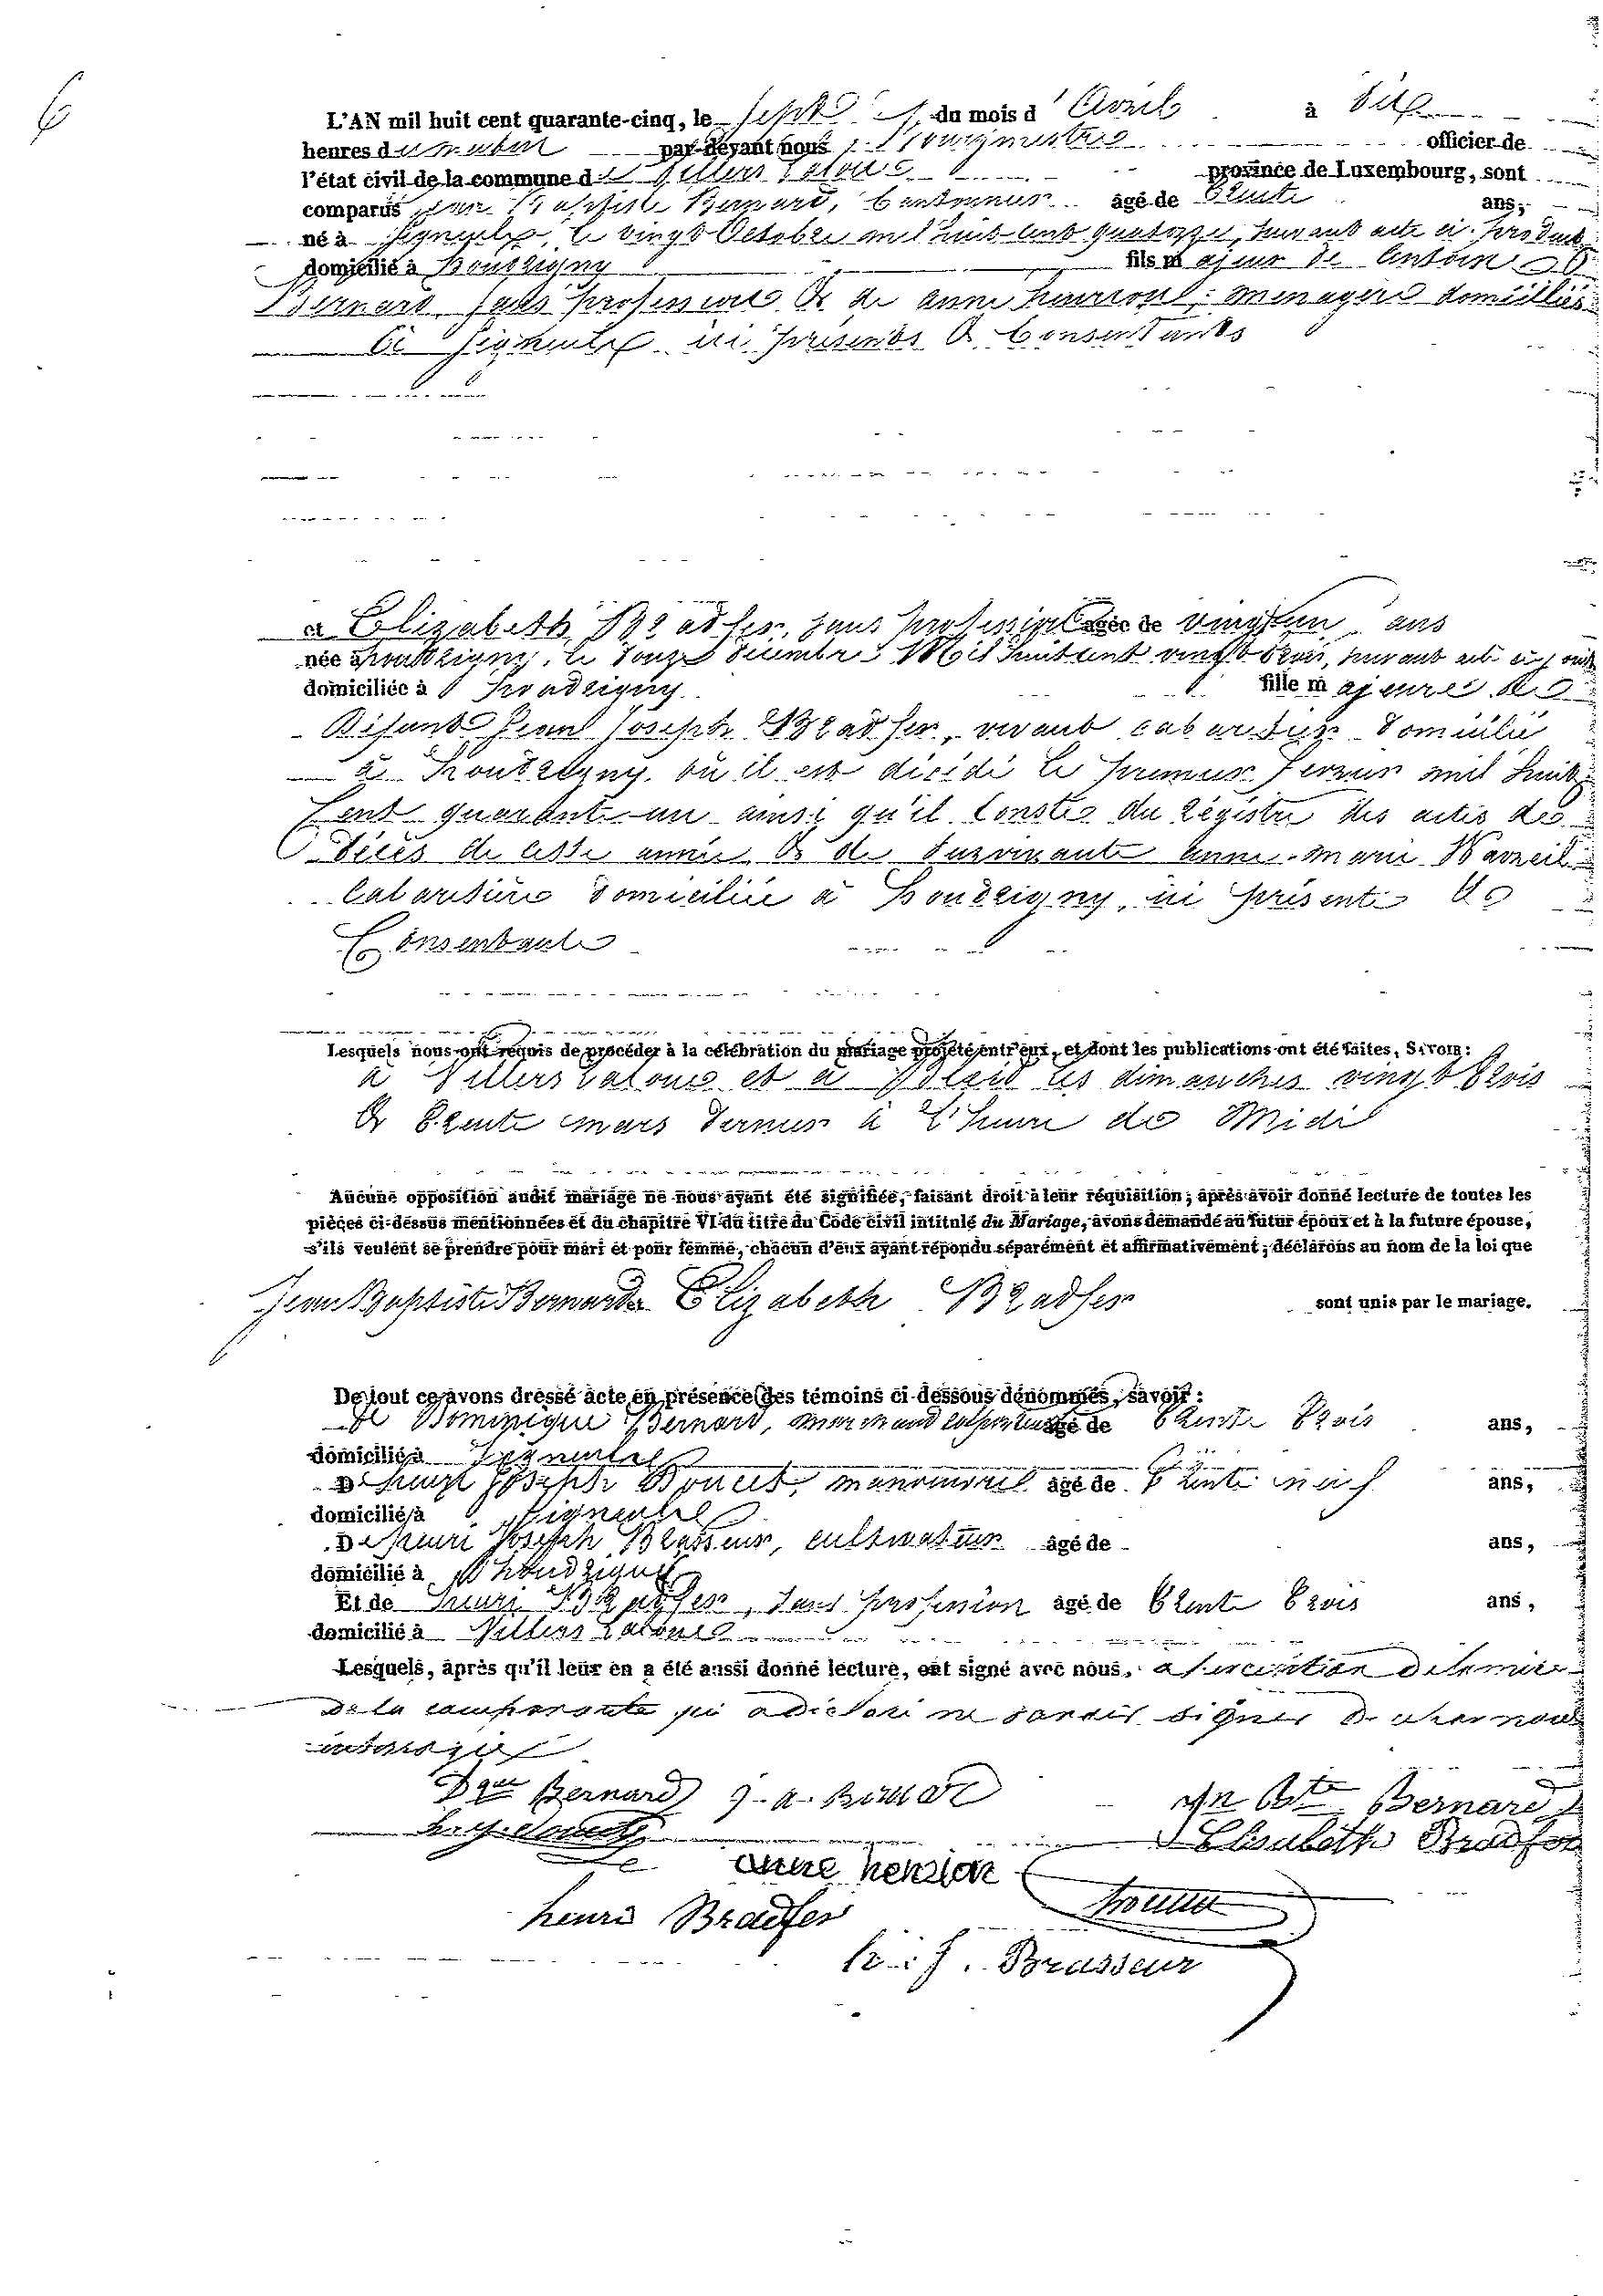 6
L'AN mil huit cent quarante-cinq, le sept du mois d'Avril à dix
heures du matin par-devant nous Bourgmestre officier de
l'état civil de la commune de Villers Laloue province de Luxembourg, sont
comparus Jean Baptiste Bernard, Cantonnier âgé de trente ans,
né à Signeulx, le vingt Octobre mil huit cent quatorze, suivant acte ci produit
domicilié à fils majeur de Antoine
Bernard sans profession & de anne ménagère domiciliés
à Signeulx ici présents & Consentants
et Elizabeth Bradfer, sans profession âgée de vingt un ans
née à le Décembre Mil huit cent vingt trois, suivant acte
domiciliée à fille majeure de
Difunt Jean Joseph Bradfer, vivant cabaretier domicilié
à où il est décédé le premier fevrier mil huit
Cent quarante un ainsi qu'il Conste du Régistre des actes de
Décès de cette année & de survivante anne-marie
Cabaretière domiciliée à ici présente &
Consentante
Lesquels nous ont requis de procéder à la célébration du mariage projeté entr'eux, et dont les publications ont été faites, SAVOIR:
à Villers Laloue et à les dimanches vingt trois
& trente mars dernier à l'heure de Midi
Aucune opposition audit mariage ne nous ayant été signifiée, faisant droit à leur réquisition; après avoir donné lecture de toutes les
pièces ci-dessus mentionnées et du chapitre VI du titre du Code civil intitulé du Mariage, avons demandé au futur époux et à la future épouse,
s'ils veulent se prendre pour mari et pour femme, chacun d'eux ayant répondu séparément et affirmativement; déclarons au nom de la loi que
Jean Baptiste Bernard & Elizabeth Bradfer sont unis par le mariage.
De tout ce avons dressé acte en présence des témoins ci-dessous dénommés, savoir:
De Dominique Bernard, marchand colporteur âgé de trente trois ans,
domicilié à Signeulx
De Joseph Doucet, manouvrier âgé de trente neuf ans,
domicilié à Signeulx
De henri Joseph Brasseur, cultivateur âgé de ans,
domicilié à
Et de henri Bradfer, sans profession âgé de trente trois ans,
domicilié à Villers Laloue
Lesquels, après qu'il leur en a été aussi donné lecture, ont signé avec nous, a l'exception de la mère
de la comparante qui a déclaré ne savoir signer
Dque Bernard J-A-Bernard Jn Bte Bernard
h. j. Doucet Elisabeth Bradfer
anne henrion
henri Bradfer
h: J. Brasseur